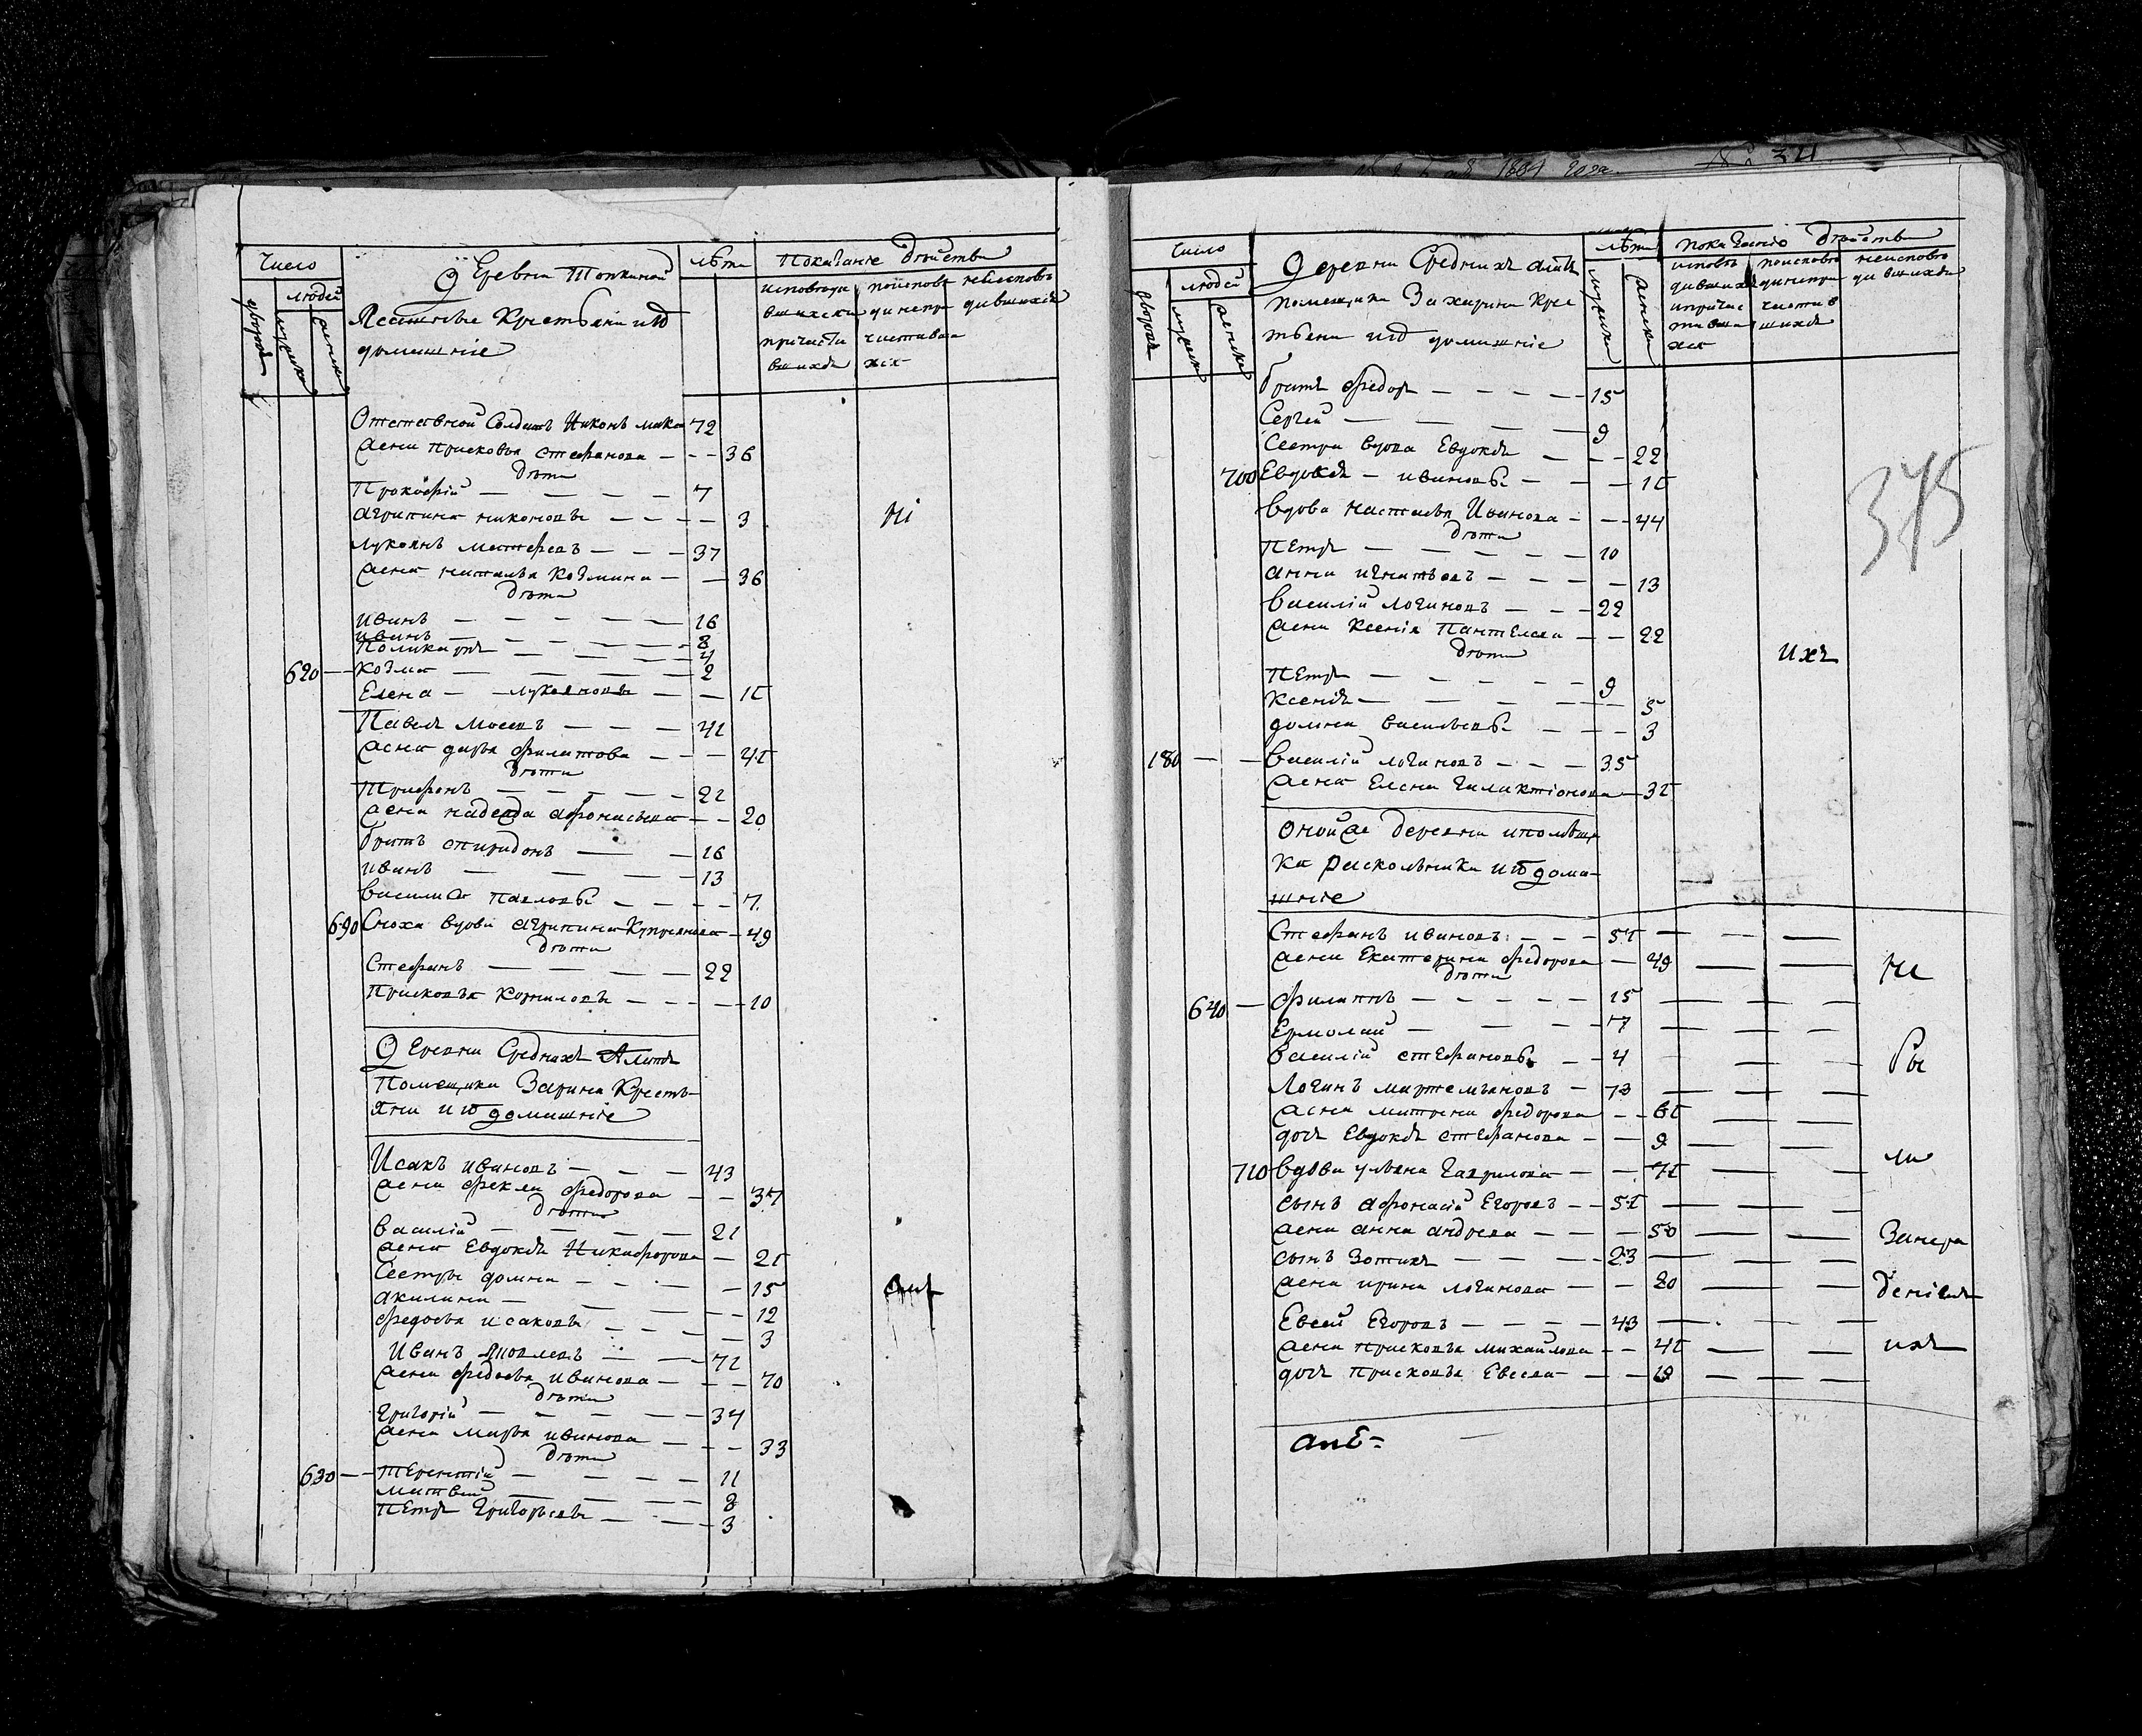 Число
людей
дворовъ
мужска
женска
Деревни Топкиной
Ясашные Крестьяни и ид
домашніе
лѣта
Показаніе Действа
исповеда
вшихся и
причасти
вшихся
поисповѣ
динепри
чистивш
ихся
неисповѣ
дившихся
Отставной Солдатъ Никонъ 72
жена Присковья Стефанова — 36
дѣти
Прокофій — 7
Агрипина Никоновы — 3
Лукоянъ — 37
жена Наталья Козмина — 36
дѣти
Иванъ — 16
Иванъ — 8
Поликарпъ — 4
620 — Козма — 2
Елена — Лукояновы — 11
Павелъ — 41
жена Дарья Филатова — 41
дѣти
Трифонъ — 22
жена Надежда Афонасьева — 20
братъ Спиридонъ — 16
Иванъ — 13
Василиса Павловы — 7
690 Сноха вдова Агрипина Купреянова — 49
дѣти
Стефанъ — 22
Присковья Корниловы — 10
Деревни Среднихъ Алатъ
Помещика Зарина Кресть-
яни и ид домашніе
Исакъ Ивановъ — 43
жена Фекла Федорова — 37
дѣти
Василій — 21
жена Евдокія Никифорова — 21
Сестры Домна — 15
Акилина — 12
Федосья Исаковы — 3
Иванъ Яковлевъ — 71
жена Федосья Иванова — 70
дѣти
Григорій — 34
жена Марья Иванова — 33
дѣти
630 — Терентій — 11
Матвей — 8
Петръ Григорьевы — 3
Число
людей
дворовъ
мужска
женска
Деревни Среднихъ Алатъ
помещика Захарина Крес
тьяни и ид домашніе
лѣта
мужска
женска
показаніе Действа
исповѣ
дивших
ипричас
тивши
хся
поисповѣ
динепри
частив
шихся
неисповѣ
дившихся
375
братъ Федоръ — 15
Сергей — 9
Сестра вдова Евдокія — 22
700 Евдокія — Ивановы — 11
вдова Настасья Иванова — 44
дѣти
Петръ — 10
Анна Игнатьевы — 13
Василій Логиновъ — 22
жена Ксенія Пантелева — 22
дѣти
ихъ
Петръ — 9
Ксенія — 5
Домна Васильевы — 3
180 — Василій Логиновъ — 35
жена Елена Галактіонова — 31
Оной же деревни ипомѣщи
ка раскольники и ид дома-
шніе
Стефанъ Ивановъ — 51
жена Екатерина Федорова — 49
дѣти
640 — Филиппъ — 15
Ермолай — 7
Василій Стефановы — 4
Логинъ Мартемьяновъ — 73
жена Матрена Федорова — 61
дочь Евдокія Стефанова — 9
710 вдова Ульяна Гаврилова — 71
сынъ Афонасій Егоровъ — 51
жена Анна Андрева — 50
сынъ Зотикъ — 23
жена Ирина Логинова — 20
Евсей Егоровъ — 43
жена Присковья Михайлова — 41
дочь Присковья Евсева — 19
ихъ